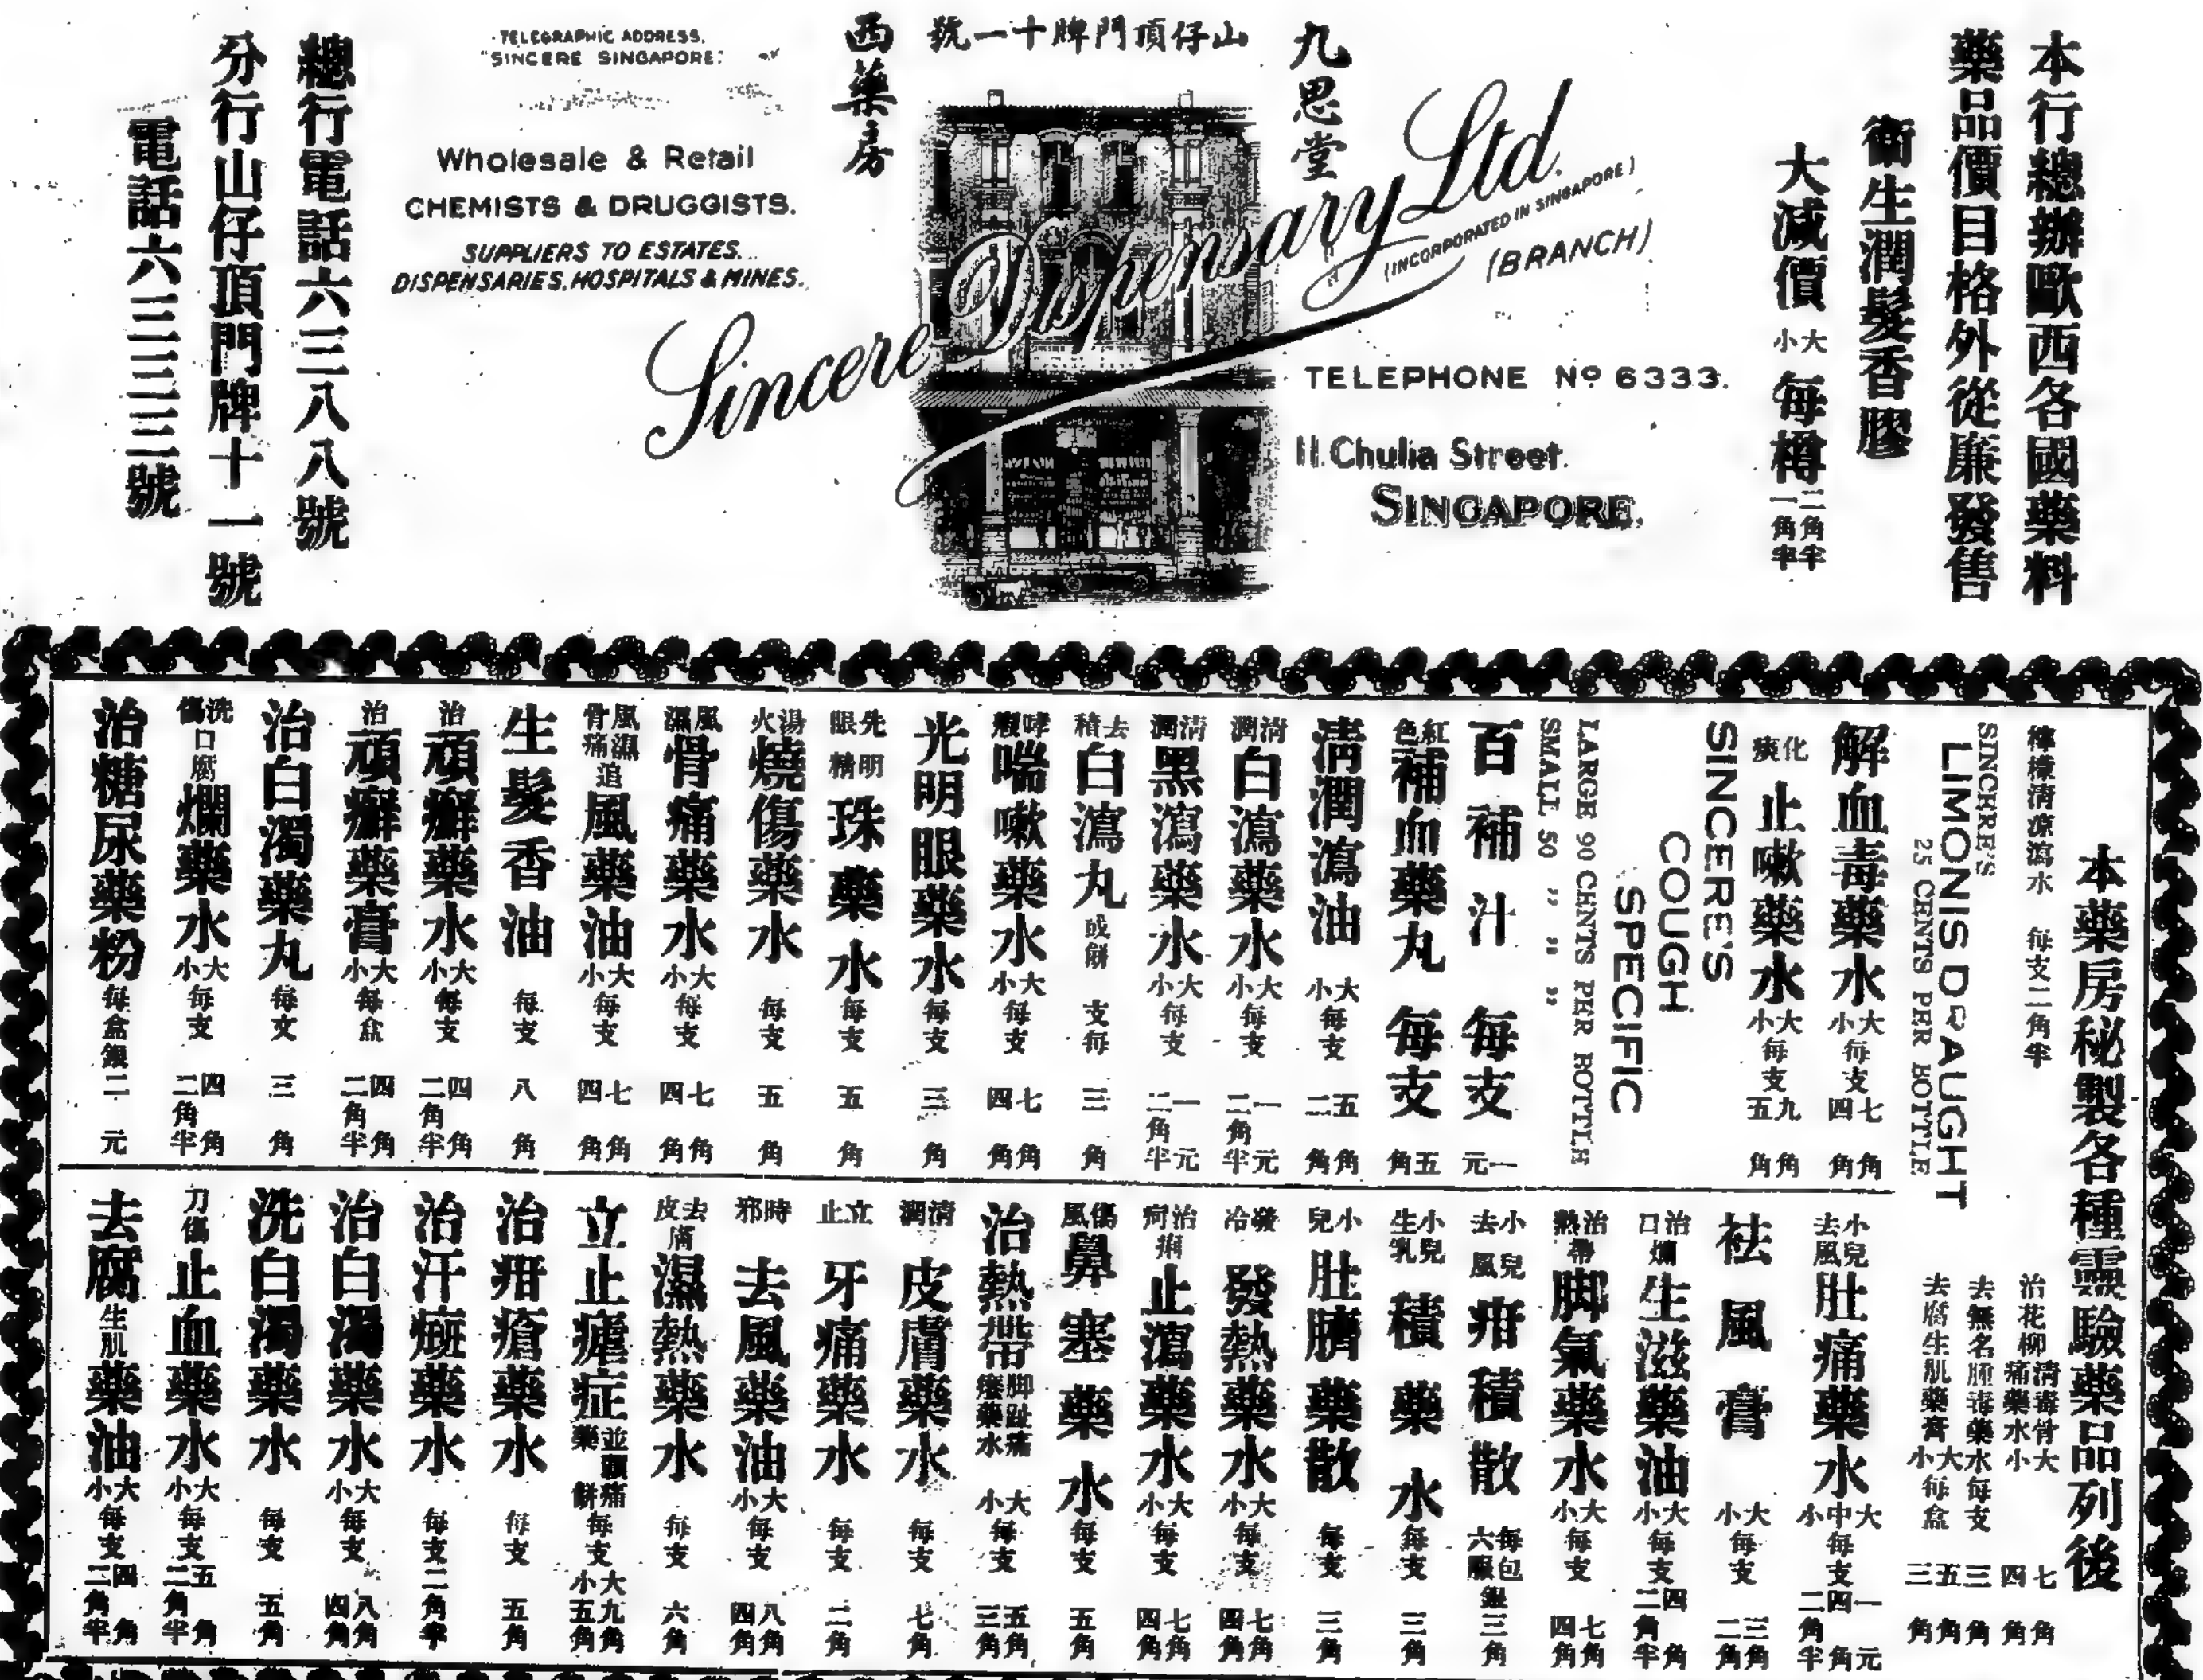 本行總辦歐西各國藥料
藥品價目格外從廉發售
衛生潤髮香膠
大減價 大小 每樽 二角半 一角半
九思堂
山仔頂門牌十一號
西藥房
TELEGRAPHIC ADDRESS.
"SINCERE SINGAPORE."
Wholesale & Retail
CHEMISTS & DRUGGISTS.
SUPPLIERS TO ESTATES.
DISPENSARIES, HOSPITALS & MINES.
Sincere Dispensary Ltd.
(INCORPORATED IN SINGAPORE)
(BRANCH)
TELEPHONE Nº 6333.
11. Chulia Street.
SINGAPORE.
總行電話六三八八號
分行山仔頂門牌十一號
電話六三三三號
本藥房秘製各種靈驗藥品列後
檸檬清凉瀉水 每支二角半
SINCERE'S
LIMONIS DRAUGHT
25 CENTS PER BOTTLE
解血毒藥水 大小 每支 七角 四角
化痰 止嗽藥水 大小 每支 九角 五角
SINCERE'S
COUGH
SPECIFIC
LARGE 90 CENTS PER BOTTLE
SMALL 50 " " "
百補汁 每支 一元
紅色 補血藥丸 每支 五角
清潤瀉油 大小 每支 五角 二角
清潤 白瀉藥水 大小 每支 一元 二角半
清潤 黑瀉藥水 大小 每支 一元 二角半
去積 白瀉丸 或餅 每支 三角
哮 喘嗽藥水 大小 每支 七角 四角
光明眼藥水 每支 三角
光明眼精 珠藥水 每支 五角
湯火 燒傷藥水 每支 五角
風濕 骨痛藥水 大小 每支 七角 四角
風濕骨痛 追風藥油 大小 每支 七角 四角
生髮香油 每支 八角
治頑癬藥水 大小 每支 四角 二角半
治頑癬藥膏 大小 每盒 四角 二角半
治白濁藥丸 每支 三角
洗傷口腐爛藥水 大小 每支 四角 二角半
治糖尿藥粉 每盒銀二元
治花柳清毒骨痛藥水 大小 七角 四角
去無名腫毒藥水 每支 三角
去腐生肌藥膏 大小 每盒 五角 三角
小兒去風 肚痛藥水 大中小 每支 一元 四角 二角半
祛風膏 大小 每支 三角 二角
治口爛 生滋藥油 大小 每支 四角 二角半
治熱帶 脚氣藥水 大小 每支 七角 四角
小兒去風 疳積散 每包六服 銀三角
小兒生乳 積藥水 每支 三角
小兒 肚臍藥散 每支 三角
發冷 發熱藥水 大小 每支 七角 四角
治疴痢 止瀉藥水 大小 每支 七角 四角
傷風 鼻塞藥水 每支 五角
治熱帶脚趾痛癢藥水 大小 每支 五角 三角
清潤 皮膚藥水 每支 七角
立止 牙痛藥水 每支 二角
時邪 去風藥油 大小 每支 八角 四角
去皮膚 濕熱藥水 每支 六角
立止瘧症 並頭痛藥餅 每支 大九角 小五角
治疳瘡藥水 每支 五角
治汗癍藥水 每支 二角半
治白濁藥水 大小 每支 八角 四角
洗白濁藥水 每支 五角
刀傷 止血藥水 大小 每支 五角 二角半
去腐生肌藥油 大小 每支 四角 二角半